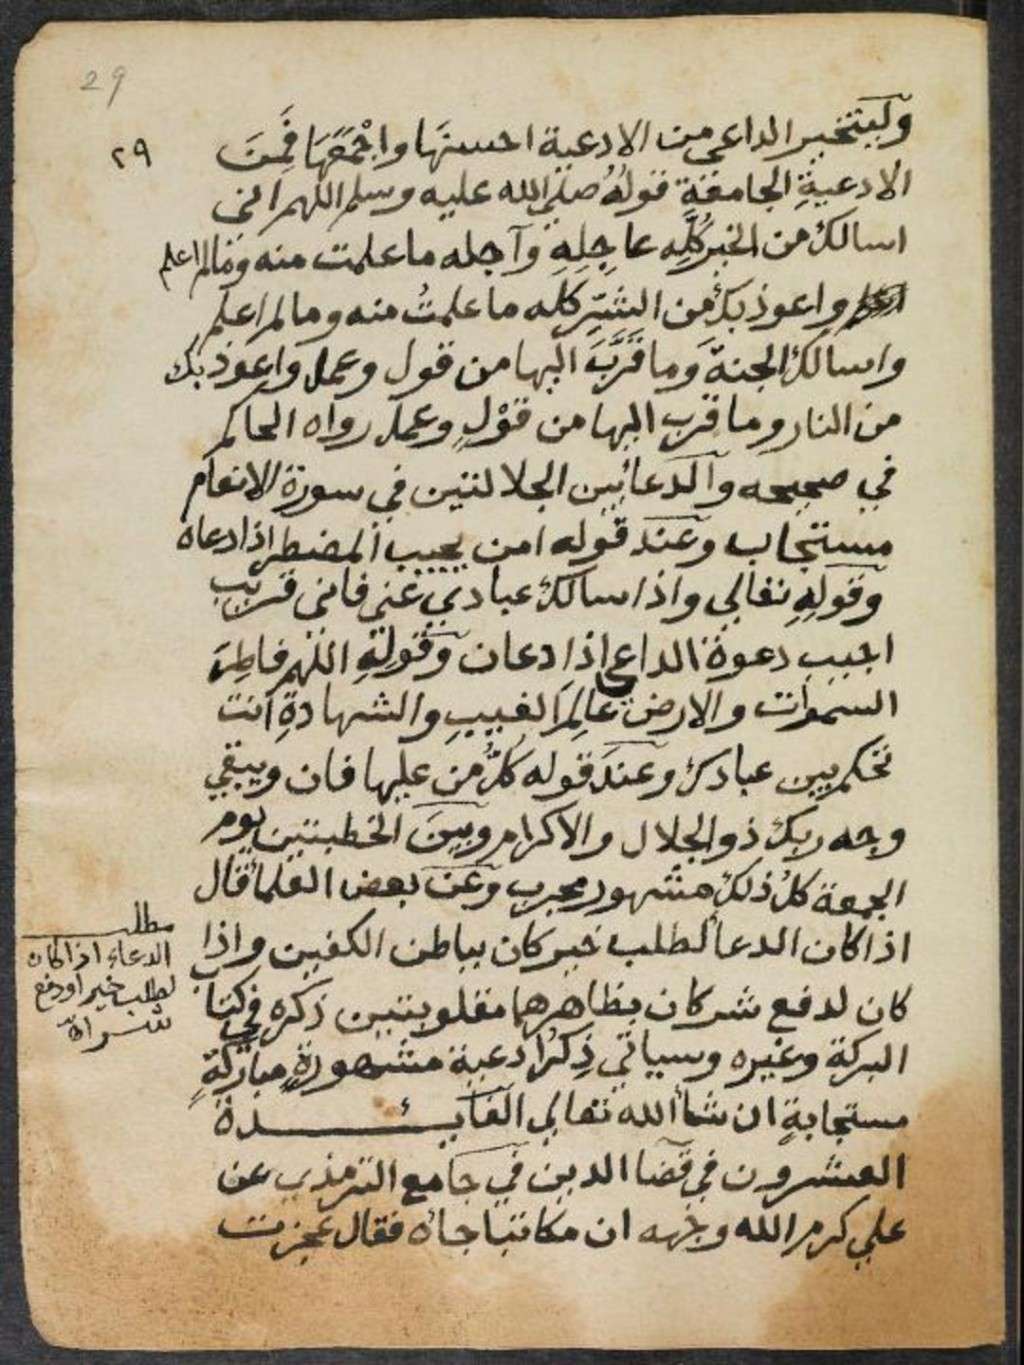 29
٢٩
وليتخير الداعي من الادعية احسنَها واجْمَعَها فَمِنَ
الادعيةِ الجامعةِ قولُهُ صلي الله عليه وسلم اللهم اني
اسالك من الخير كُلِّه عاجِلِهِ وآجله ما علمت منه وما لم اعلم
واعوذ بك من الشرِّ كله ما علمتُ منه وما لم اعلم
واسالك الجنةَ وما قَرَّبَ اليها من قول وعمل واعوذ بك
من النار وما قرب اليها من قوْلٍ وعمل رواه الحاكم
في صحيحه والدعا بين الجلالتين في سورة الانعام
مستجاب وعند قوله امن يجيب المضطر اذا دعاه
وقولِهِ تعالي واذا سالك عبادي عني فاني قريب
اجيب دعوة الداعي اذا دعان وقولِهِ اللهم فاطِرَ
السموات والارض عالِمَ الغيبِ والشهادةِ انت
تحكم بين عبادك وعند قوله كلُّ من عليها فان ويبقي
وجه ربك ذو الجلال والاكرام وبينَ الخطبتين يوم
الجمعة كلُ ذلك مشهور مجرب وعن بعض العلما قال
اذا كان الدعا لطلب خير كان بباطن الكفين واذا
كان لدفع شر كان بظاهرهما مقلوبتين ذكره في كتاب
البركة وغيره وسياتي ذِكرُ ادعية مشهورةٍ مباركةٍ
مستجابةٍ ان شا الله تعالي الفايـــدة
العشرون في قضا الدين في جامع الترمذي عن
علي كرم الله وجهه ان مكاتبا جاه فقال عجزت
مطلب
الدعاء اذا كان
لطلب خير او دفع
شر